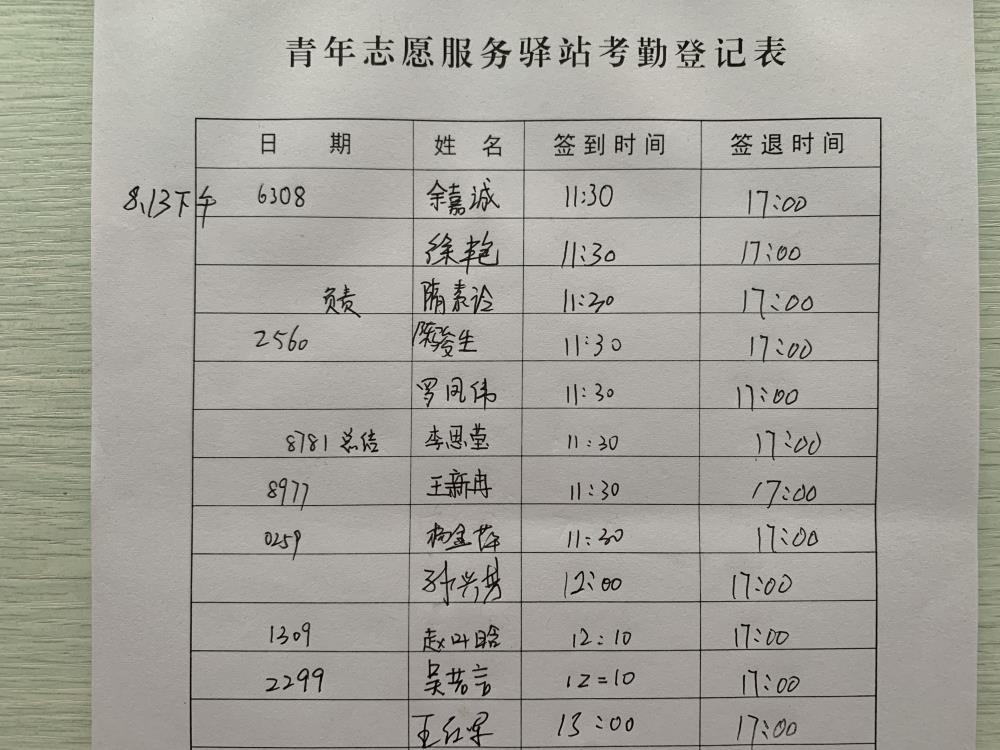 青年志愿服务驿站考勤登记表
日 期 姓 名 签到时间 签退时间
8.13下午 6308 余嘉诚 11:30 17:00
徐艳 11:30 17:00
负责 隋素诠 11:30 17:00
2560 陈俊生 11:30 17:00
罗凤伟 11:30 17:00
8781 总结 李思莹 11:30 17:00
8977 王新冉 11:30 17:00
0259 杨金萍 11:30 17:00
孙兴芳 12:00 17:00
1309 赵叶晗 12:10 17:00
2299 吴若言 12=10 17:00
王红军 13:00 17:00